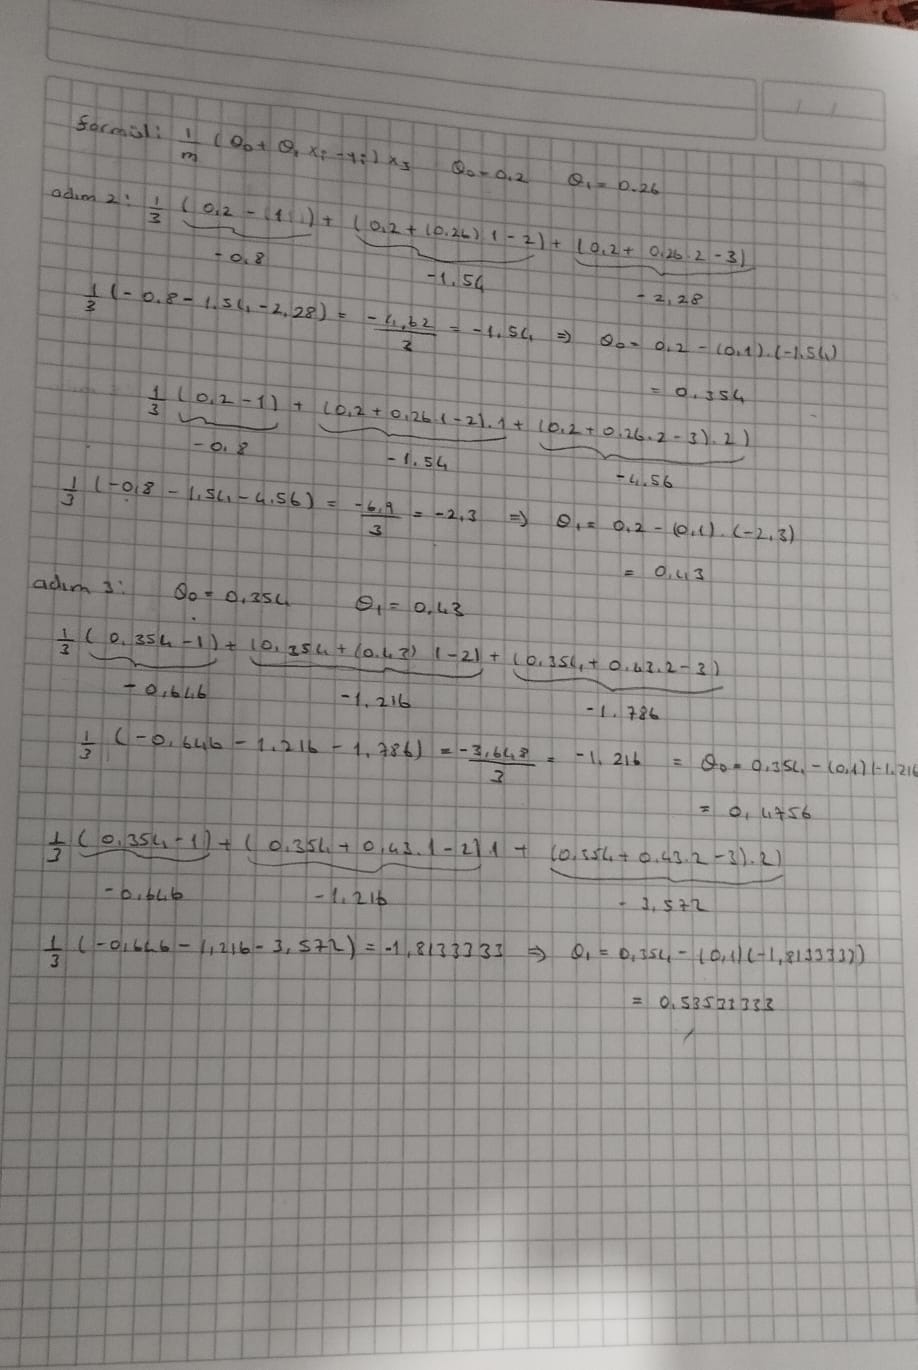 formül: 1/m (θ₀ + θ₁ xᵢ - yᵢ) xⱼ θ₀ = 0.2 θ₁ = 0.26
adım 2: 1/3 (0.2 - 1) + (0.2 + (0.26) 1 - 2) + (0.2 + 0.26.2 - 3)
-0.8 -1.54 -2,28
1/3 (-0.8 - 1.54 - 2,28) = -4,62/3 = -1.54 ⇒ θ₀ = 0.2 - (0.1).(-1.54)
= 0.354
1/3 (0.2 - 1) + (0.2 + 0.26.1 - 2).1 + (0.2 + 0.26.2 - 3).2)
-0.8 -1.54 -4.56
1/3 (-0.8 - 1.54 - 4.56) = -6.9/3 = -2,3 ⇒ θ₁ = 0.2 - (0.1).(-2,3)
= 0.43
adım 3: θ₀ = 0.354 θ₁ = 0.43
1/3 (0.354 - 1) + (0.354 + (0.43) 1 - 2) + (0.354 + 0.43.2 - 3)
-0,646 -1,216 -1.786
1/3 (-0,646 - 1.216 - 1.786) = -3,648/3 = -1,216 = θ₀ = 0.354 - (0.1)(-1.216
= 0,4756
1/3 (0.354 - 1) + (0.354 + 0.43.1 - 2) 1 + (0.354 + 0.43.2 - 3).2)
-0.646 -1,216 -3,572
1/3 (-0,646 - 1,216 - 3,572) = -1,8133333 ⇒ θ₁ = 0,354 - (0,1)(-1,8133333)
= 0.53533333